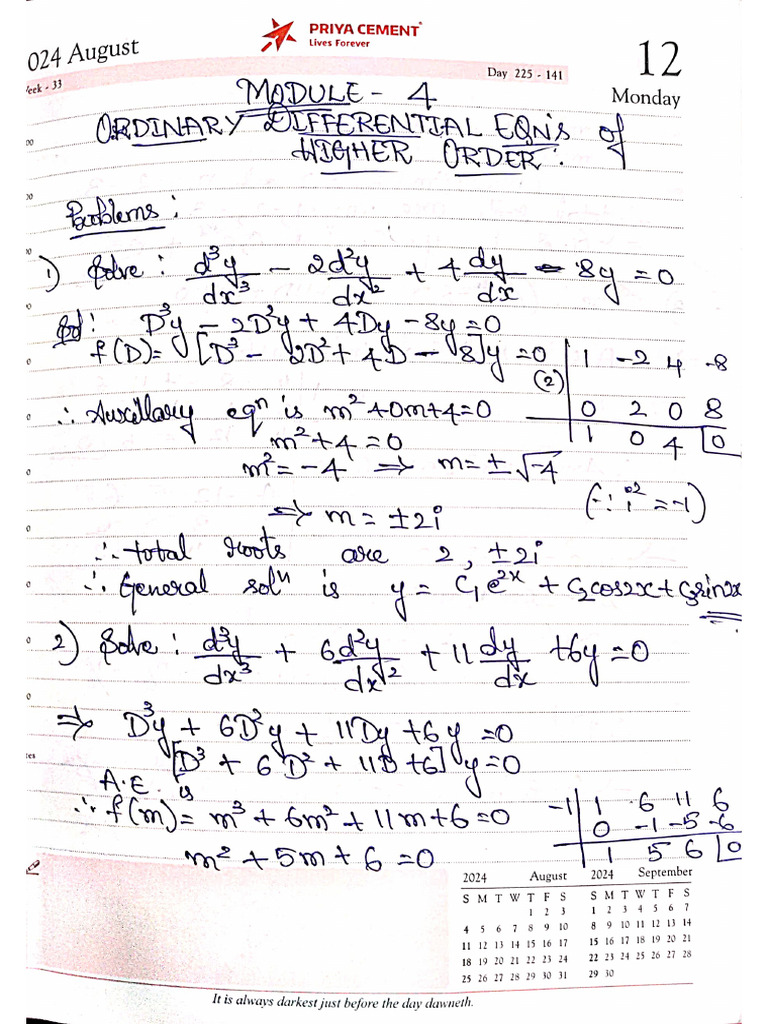 PRIYA CEMENT
Lives Forever
024 August
Week - 33
Day 225 - 141
12
Monday
MODULE - 4
ORDINARY DIFFERENTIAL EQN's of
HIGHER ORDER:
Problems:
1) Solve: d³y/dx³ - 2d²y/dx² + 4dy/dx - 8y = 0
Sol: D³y - 2D²y + 4Dy - 8y = 0
f(D) = [D³ - 2D² + 4D - 8]y = 0
(2) | 1 -2 4 -8
0 2 0 8
1 0 4 |0
∴ Auxillary eqⁿ is m² + 0m + 4 = 0
m² + 4 = 0
m² = -4 ⇒ m = ±√-4
⇒ m = ±2i (∵ i² = -1)
∴ total roots are 2, ±2i
∴ General solⁿ is y = C₁e²ˣ + C₂cos2x + C₃sin2x
2) Solve: d³y/dx³ + 6d²y/dx² + 11dy/dx + 6y = 0
⇒ D³y + 6D²y + 11Dy + 6y = 0
[D³ + 6D² + 11D + 6]y = 0
A.E. is
∴ f(m) = m³ + 6m² + 11m + 6 = 0
-1 | 1 6 11 6
0 -1 -5 -6
1 5 6 |0
m² + 5m + 6 = 0
2024 August
S M T W T F S
1 2 3
4 5 6 7 8 9 10
11 12 13 14 15 16 17
18 19 20 21 22 23 24
25 26 27 28 29 30 31
2024 September
S M T W T F S
1 2 3 4 5 6 7
8 9 10 11 12 13 14
15 16 17 18 19 20 21
22 23 24 25 26 27 28
29 30
It is always darkest just before the day dawneth.